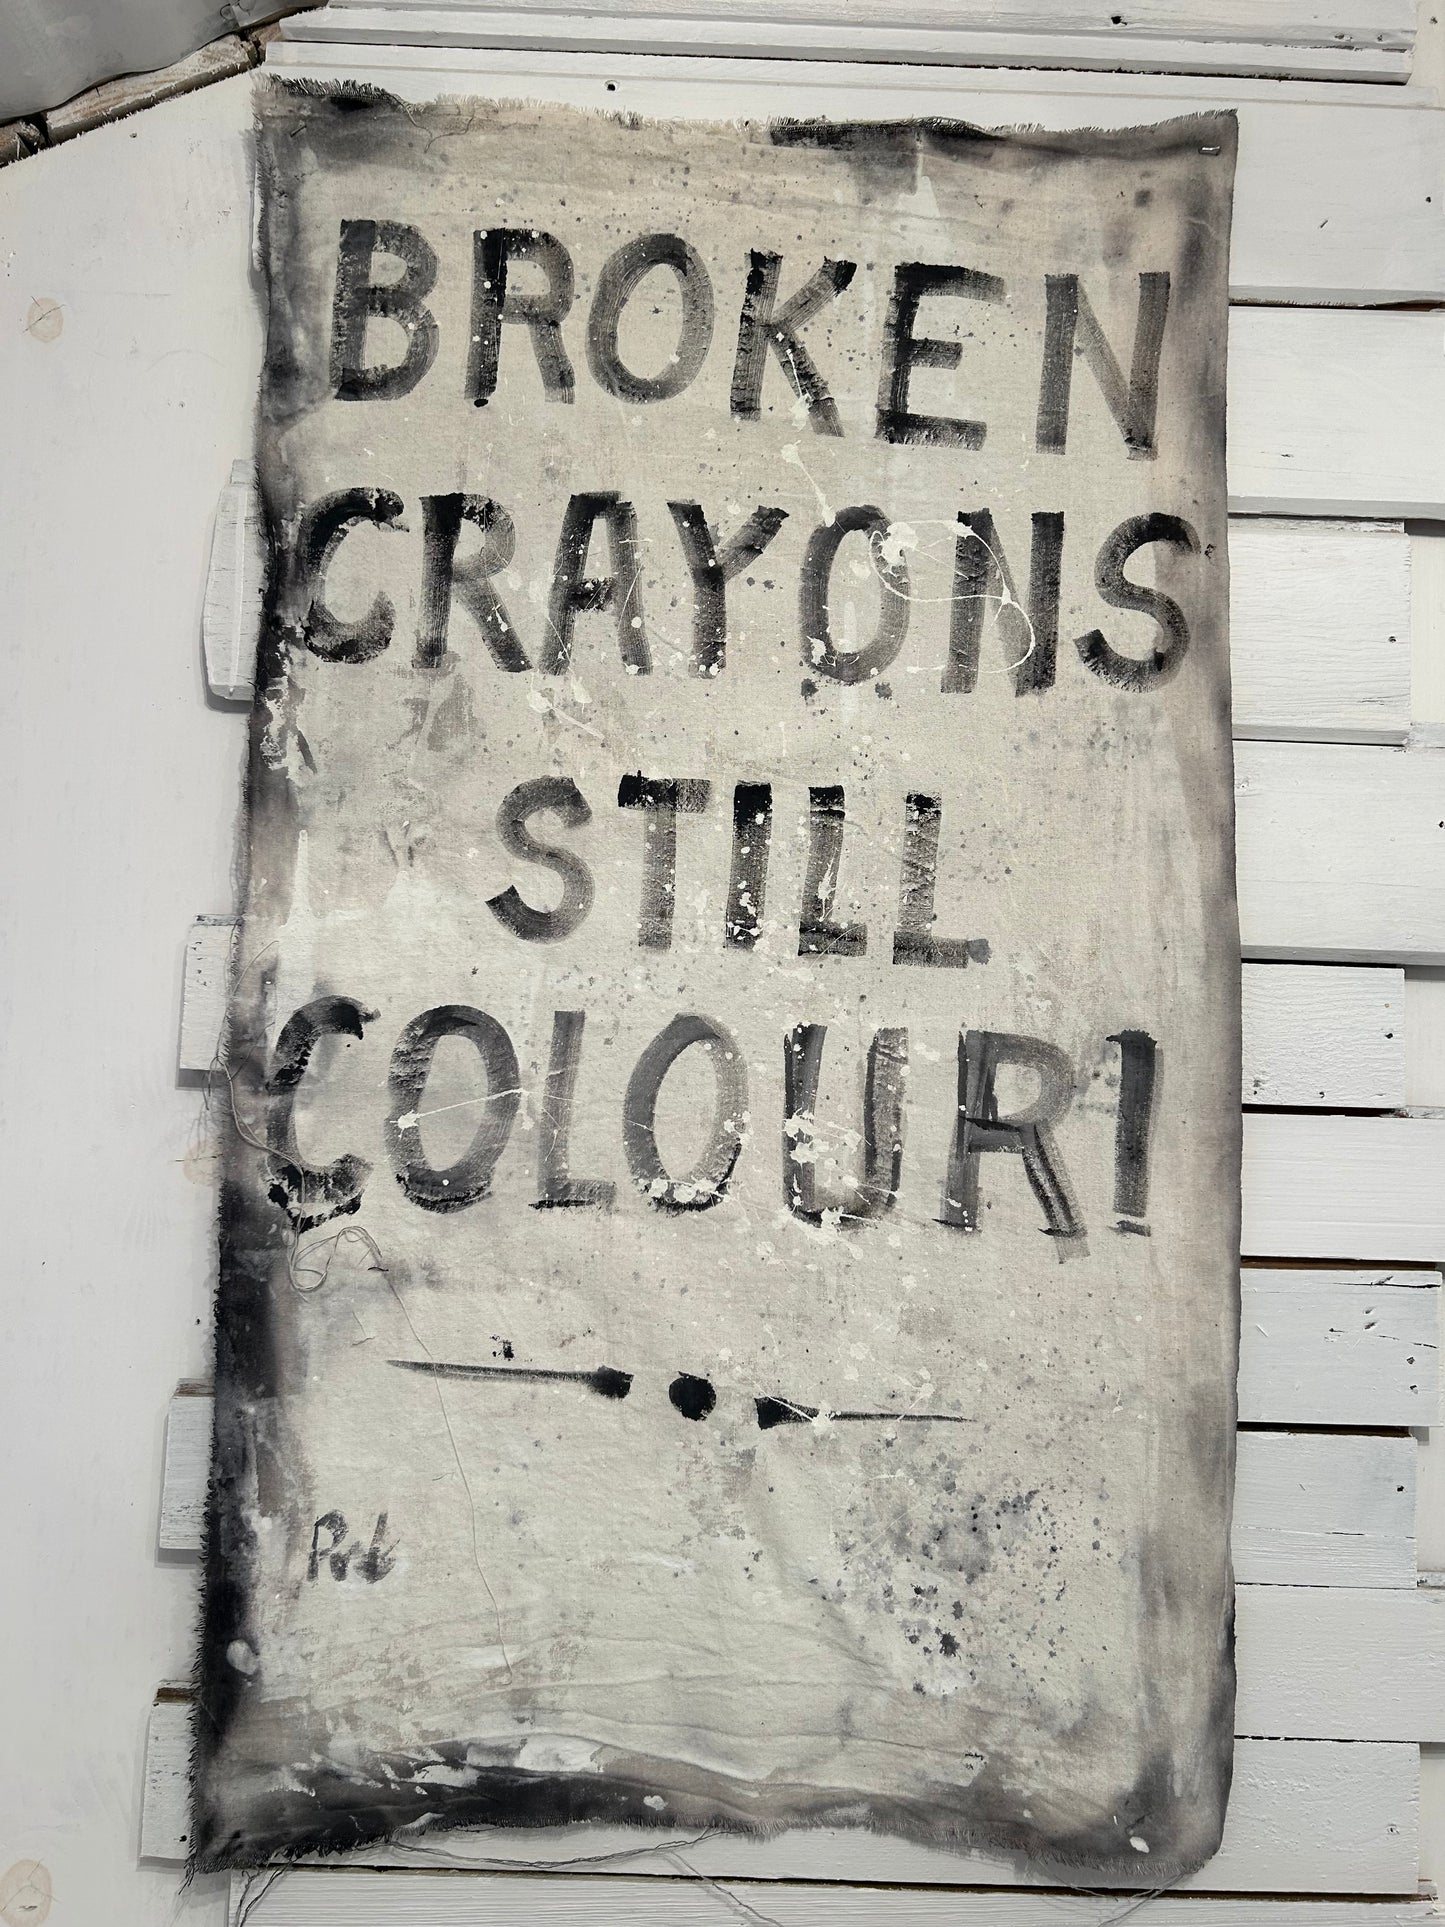 BROKEN
CRAYONS
STILL
COLOUR!